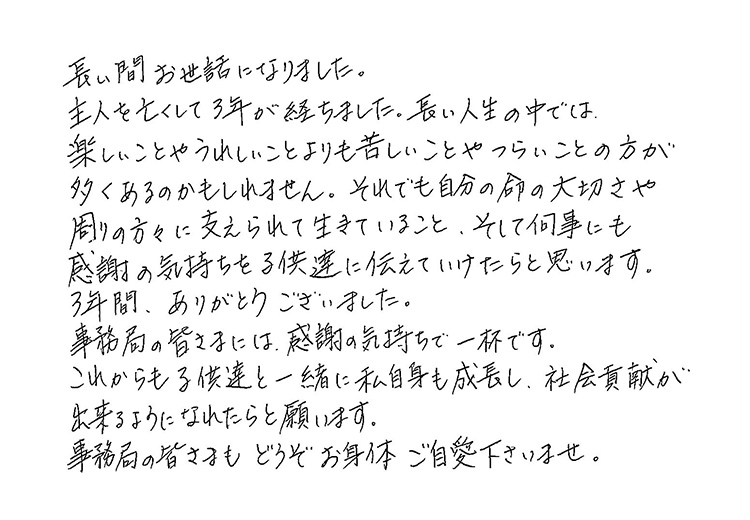 長い間お世話になりました。
主人を亡くして3年が経ちました。長い人生の中では、
楽しいことやうれしいことよりも苦しいことやつらいことの方が
多くあるのかもしれません。それでも自分の命の大切さや
周りの方々に支えられて生きていること、そして何事にも
感謝の気持ちを子供達に伝えていけたらと思います。
3年間、ありがとうございました。
事務局の皆さまには、感謝の気持ちで一杯です。
これからも子供達と一緒に私自身も成長し、社会貢献が
出来るようになれたらと願います。
事務局の皆さまもどうぞお身体ご自愛下さいませ。